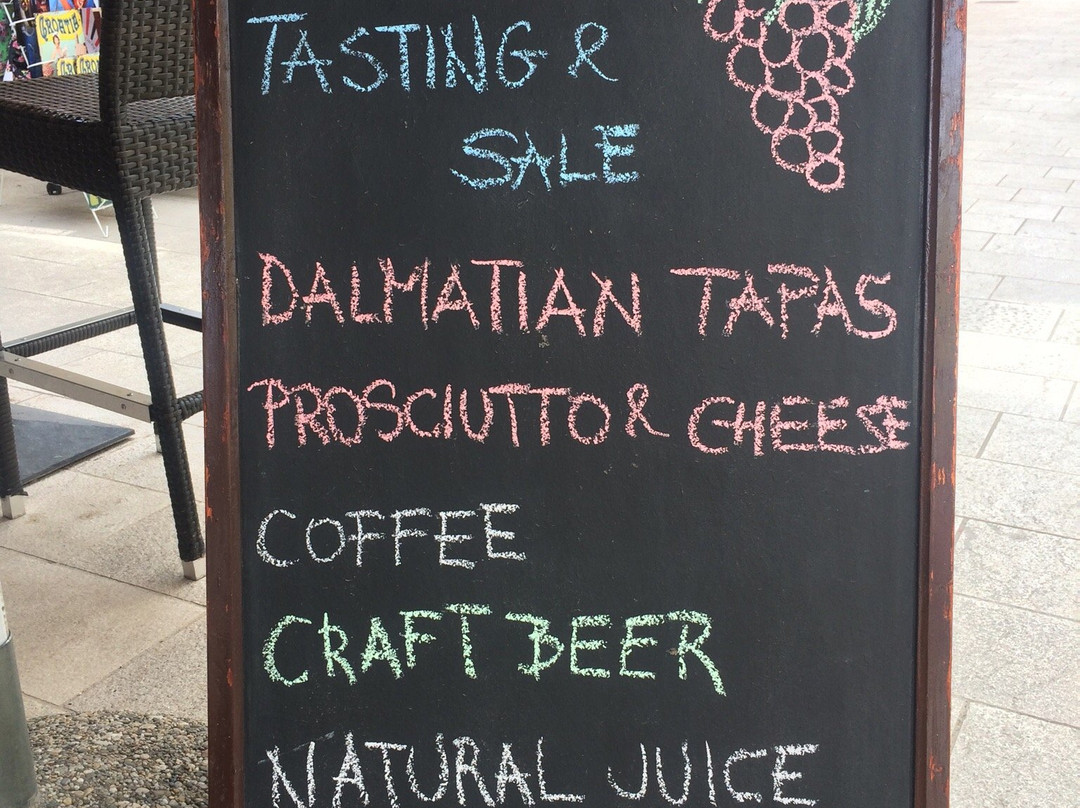 TASTING &
SALE
DALMATIAN TAPAS
PROSCIUTTO & CHEESE
COFFEE
CRAFT BEER
NATURAL JUICE